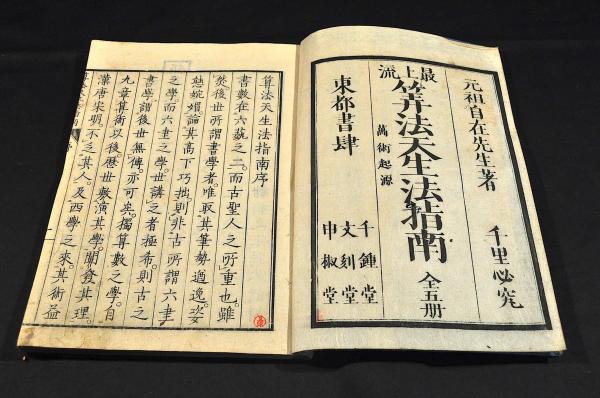 最上流
元祖自在先生著
千里必究
筭法天生法指南
全五册
萬術起源
東都書肆
千鍾堂
文刻堂
申椒堂
算法天生法指南序
書數在六蓺之二。而古聖人之所重也。雖
然後世所謂書學者。唯取其筆勢遒逸姿
態論其高下巧拙。則非古所謂六書
之學。而六書之學。世講之者極希。則古之
書學。謂後世無傳。亦可矣。獨算數之學。自
九章算術以後。歷世數演其學。闡發其理。
漢唐宋明。不乏其人。及西學之來。其術益